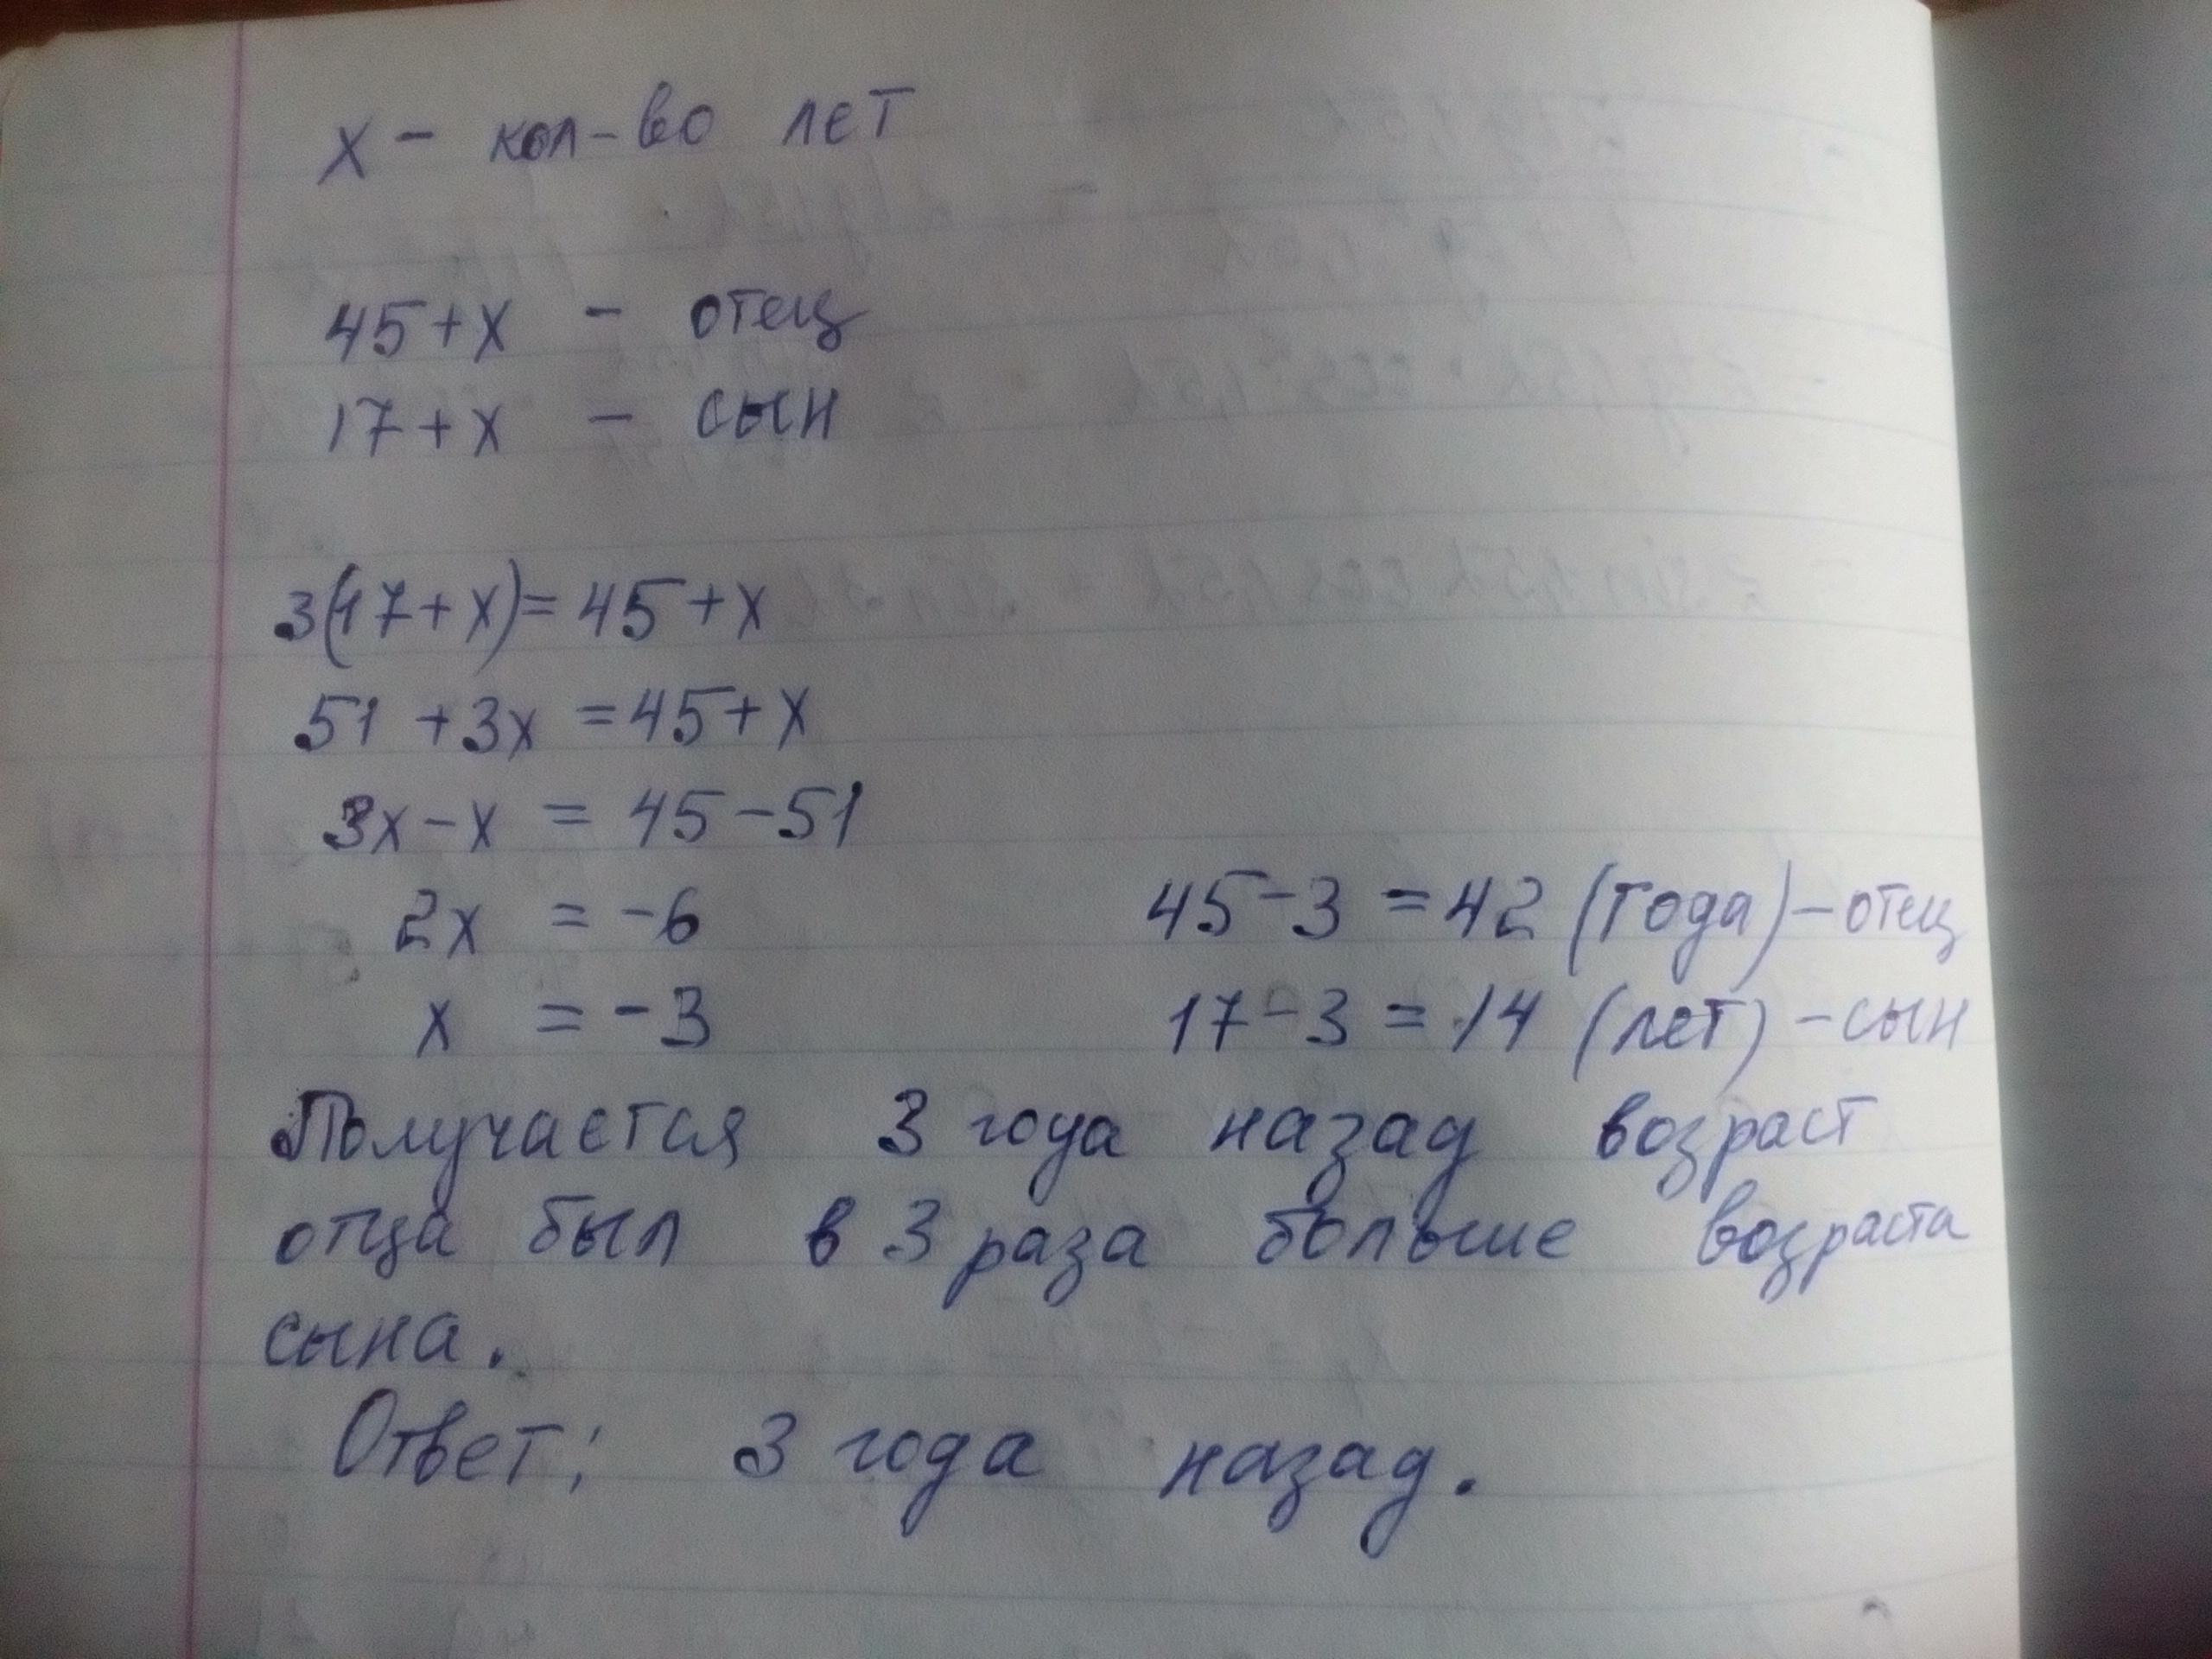 х - кол-во лет
45+х - отец
17+х - сын
3(17+х)=45+х
51 +3х =45+х
3х-х = 45-51
2х = -6
х = -3
45-3 =42 (года)-отец
17-3 =14 (лет) -сын
Получается 3 года назад возраст
отца был в 3 раза больше возраста
сына.
Ответ: 3 года назад.